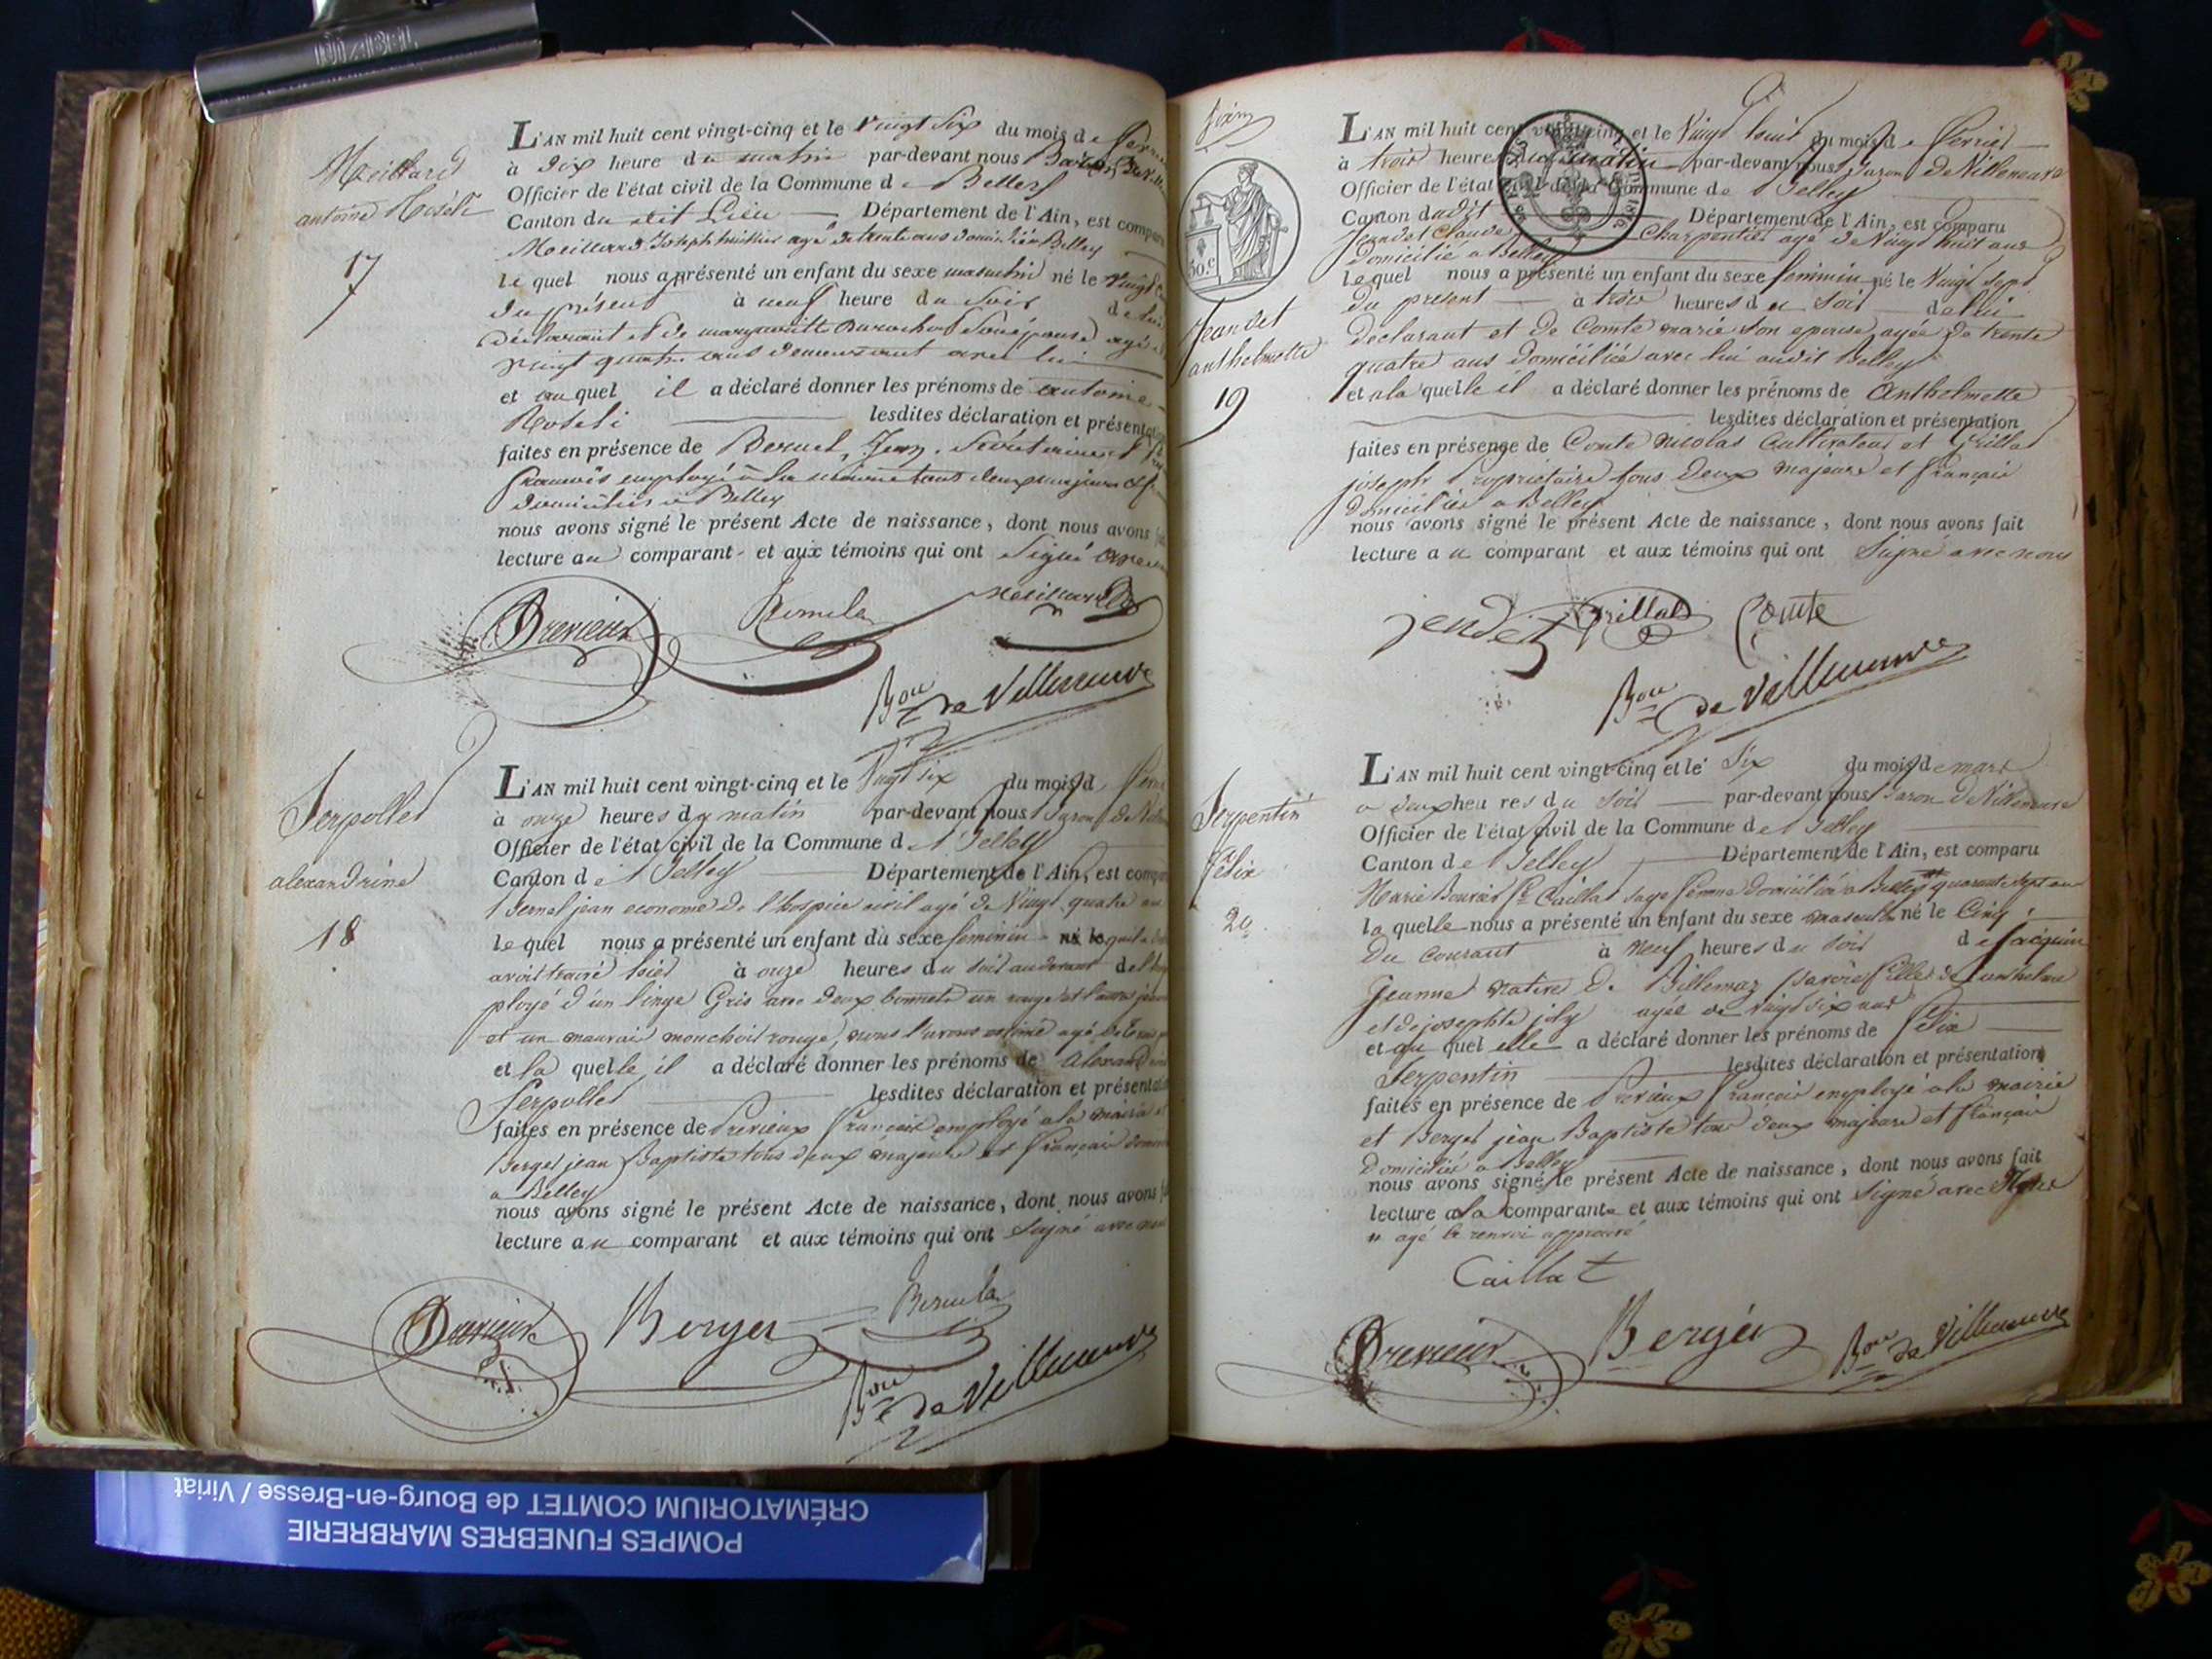 Meillard
antoine
17
L'AN mil huit cent vingt-cinq et le Vingt Six du mois de
à dix heure du matin par-devant nous Baron De
Officier de l'état civil de la Commune de Belley
Canton du dit Lieu Département de l'Ain, est comparu
Meilland Joseph agé de trente ans Belley
le quel nous a présenté un enfant du sexe masculin né le Vingt
du présent à neuf heure du Soir de lui
Déclarant et de margueritte Son épouse agé
vingt quatre ans demeurant avec lui
et au quel il a déclaré donner les prénoms de antoine
lesdites déclaration et présentation
faites en présence de Bernel Jean, Secretaire et
françois employé à la mairie tous deux majeurs
domiciliés à Belley
nous avons signé le présent Acte de naissance, dont nous avons
lecture au comparant et aux témoins qui ont Signé avec
Previeux
Bon de Villeneuve
Serpollet
alexandrine
18
L'AN mil huit cent vingt-cinq et le Vingt six du mois d
à onze heures du matin par-devant nous Baron de
Officier de l'état civil de la Commune de Belley
Canton de Belley Département de l'Ain, est comparu
Bernel jean econome de l'hospice civil agé de Vingt quatre ans
le quel nous a présenté un enfant du sexe feminin quil
avoit trouvé hier à onze heures du soir au devant de
ployé d'un linge Gris avec deux bonnets un rouge et l'autre
et un mauvai mouchoir rouge, nous l'avons estimé agé de
et la quelle il a déclaré donner les prénoms de alexandrine
Serpollet lesdites déclaration et présentation
faites en présence de Previeux français employé a la mairie et
Berger jean Baptiste tous deux majeurs et français
a Belley
nous avons signé le présent Acte de naissance, dont nous avons
lecture au comparant et aux témoins qui ont Signé avec nous
Previeux Berger
Bon de Villeneuve
50.c
Jeandet
anthelmette
19
L'AN mil huit cent vingt-cinq et le Vingt huit du mois de fevrier
à trois heures du matin par-devant nous Baron De Villeneuve
Officier de l'état civil de la Commune de Belley
Canton dudit Département de l'Ain, est comparu
Jeandet Claude Charpentier agé de Vingt huit ans
domicilié a Belley
le quel nous a présenté un enfant du sexe feminin né le Vingt Sept
du present à trois heures du soir de lui
declarant et de Comte marie son epouse agée de trente
quatre ans domiciliée avec lui audit Belley
et a la quelle il a déclaré donner les prénoms de Anthelmette
lesdites déclaration et présentation
faites en présence de Comte nicolas Cultivateur et Grillat
joseph Propriétaire tous deux majeurs et français
domiciliés a Belley
nous avons signé le présent Acte de naissance, dont nous avons fait
lecture au comparant et aux témoins qui ont Signé avec nous
jendet Grillat Comte
Bon de Villeneuve
Serpentin
felix
20
L'AN mil huit cent vingt-cinq et le Six du mois de mars
a deux heures du soir par-devant nous Baron De Villeneuve
Officier de l'état civil de la Commune de Belley
Canton de Belley Département de l'Ain, est comparu
Marie Bouvier fe Caillat Sage femme domiciliée a Belley quarante sept ans
la quelle nous a présenté un enfant du sexe masculin né le Cinq
Du Courant à neuf heures du soir de jacquin
Jeanne native de Billemaz Savoie fille de anthelme
et de josephte joly agée de vingt six ans
et au quel elle a déclaré donner les prénoms de felix
Serpentin lesdites déclaration et présentation
faites en présence de Previeux françois employé a la mairie
et Berger jean Baptiste tous deux majeurs et français
domiciliés a Belley
nous avons signé le présent Acte de naissance, dont nous avons fait
lecture a la comparante et aux témoins qui ont Signé avec Nous
agé de renvoi approuvé
Caillat
Previeux Berger Bon de Villeneuve
POMPES FUNEBRES MARBRERIE
CRÉMATORIUM COMTET de Bourg-en-Bresse / Viriat